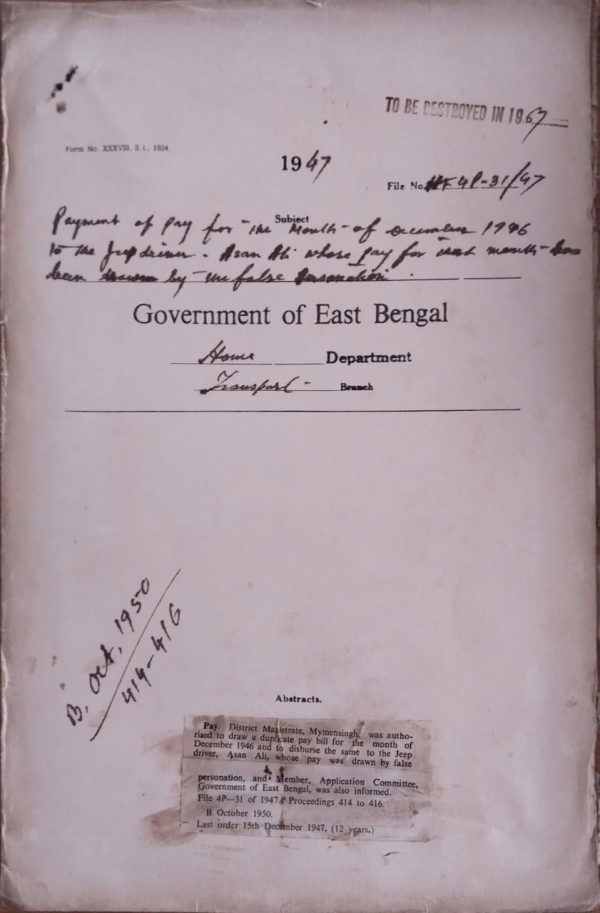 TO BE DESTROYED IN 1967
Form No. XXXVIII, S. I., 1924.
1947
File No. 4P-31/47
Subject
Payment of pay for the month of December 1946
to the Jeep driver - Asan Ali whose pay for that month has
been drawn by the false personation.
Government of East Bengal
Home Department
Transport - Branch
B. Oct, 1950
414-416
Abstracts.
Pay. District Magistrate, Mymensingh, was autho-
rised to draw a duplicate pay bill for the month of
December 1946 and to disburse the same to the Jeep
driver, Asan Ali, whose pay was drawn by false
personation, and Member, Application Committee,
Government of East Bengal, was also informed.
File 4P—31 of 1947. Proceedings 414 to 416.
B October 1950.
Last order 15th December 1947. (12 years.)